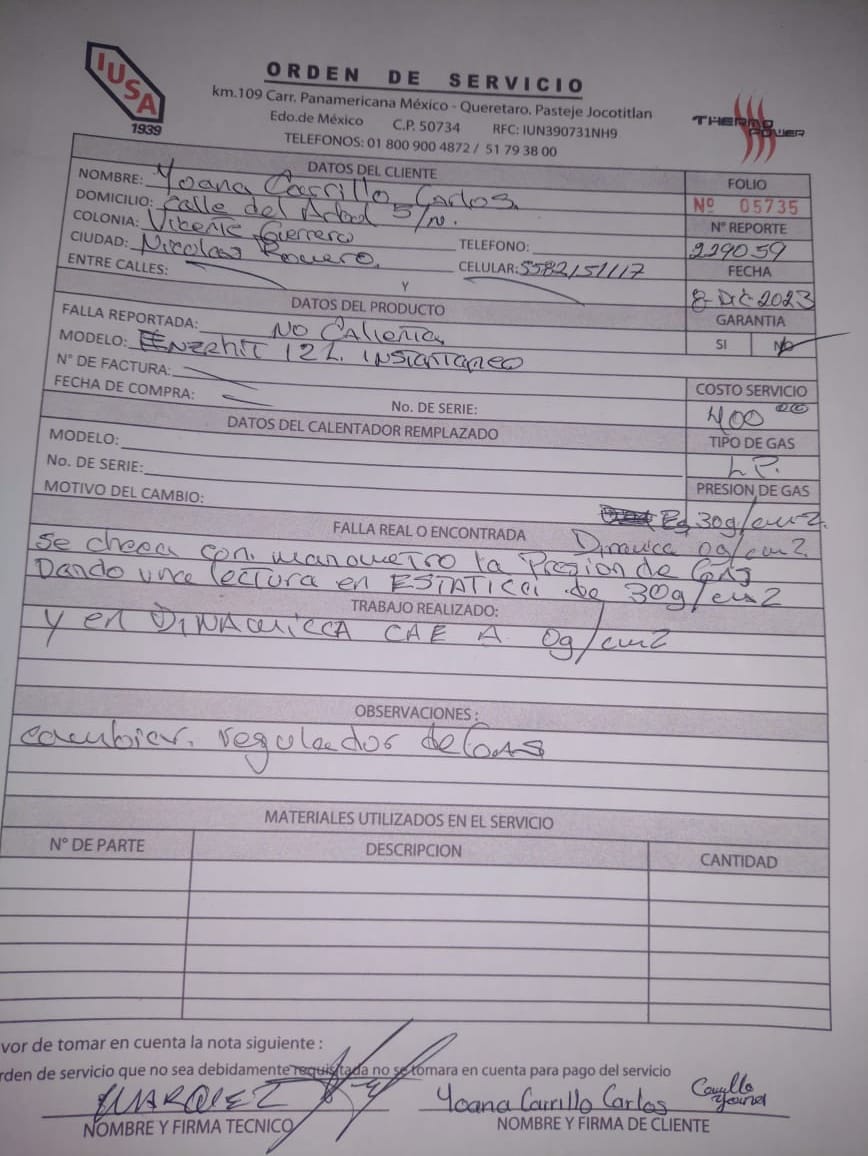 IUSA
1939
ORDEN DE SERVICIO
km.109 Carr. Panamericana México - Queretaro. Pasteje Jocotitlan
Edo.de México C.P. 50734 RFC: IUN390731NH9
TELEFONOS: 01 800 900 4872 / 51 79 38 00
THERMO POWER
DATOS DEL CLIENTE
FOLIO
Nº 05735
NOMBRE: Yoana Carrillo Carlos.
DOMICILIO: calle del Arbol S/N.
Nº REPORTE
229059
COLONIA: Vicente Guerrero TELEFONO:
CIUDAD: Nicolas Romero. CELULAR: 5582151117
FECHA
8-Dic-2023
ENTRE CALLES: Y
DATOS DEL PRODUCTO
GARANTIA
SI NO
FALLA REPORTADA: NO Calienta
MODELO: Enzehit 12L. INSTANTANEO
N° DE FACTURA:
COSTO SERVICIO
400 00
FECHA DE COMPRA: No. DE SERIE:
DATOS DEL CALENTADOR REMPLAZADO
TIPO DE GAS
L.P.
MODELO:
No. DE SERIE:
PRESION DE GAS
MOTIVO DEL CAMBIO:
Es 30g/cm2.
FALLA REAL O ENCONTRADA
Dinamica 0g/cm2
se checa con manometro la Presion de GAS
Dando una lectura en ESTATICA de 30g/cm2
TRABAJO REALIZADO:
y en DINAMICA CAE A 0g/cm2
OBSERVACIONES :
cambiar. regulador de GAS
MATERIALES UTILIZADOS EN EL SERVICIO
N° DE PARTE DESCRIPCION CANTIDAD
vor de tomar en cuenta la nota siguiente :
rden de servicio que no sea debidamente requisitada no se tomara en cuenta para pago del servicio
MARQUEZ
Yoana Carrillo Carlos Carrillo Yoana
NOMBRE Y FIRMA TECNICO
NOMBRE Y FIRMA DE CLIENTE